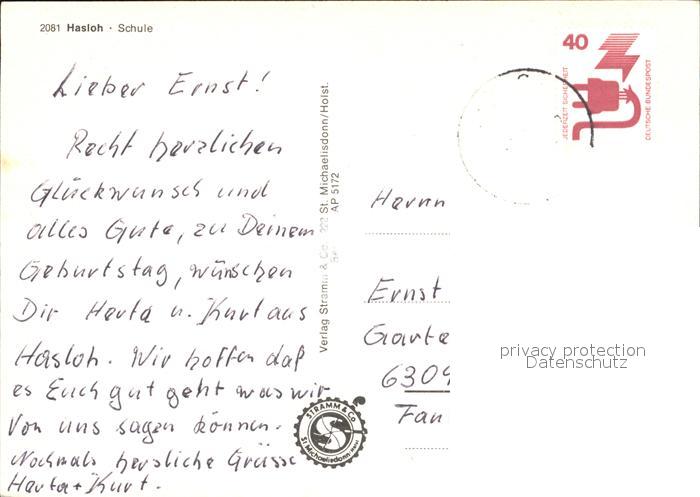 2081 Hasloh · Schule
Lieber Ernst!
Recht herzlichen
Glückwunsch und
alles Gute, zu Deinem
Geburtstag, wünschen
Dir Herta u. Kurt aus
Hasloh. Wir hoffen daß
es Euch gut geht was wir
von uns sagen können.
Nochmals herzliche Grüsse
Herta + Kurt.
Verlag Stramm & Co. 222 St. Michaelisdonn/Holst.
AP 5172
STRAMM & Co
St. Michaelisdonn
40
JEDERZEIT SICHERHEIT
DEUTSCHE BUNDESPOST
Herrn
Ernst
Garte
6309
privacy protection
Datenschutz